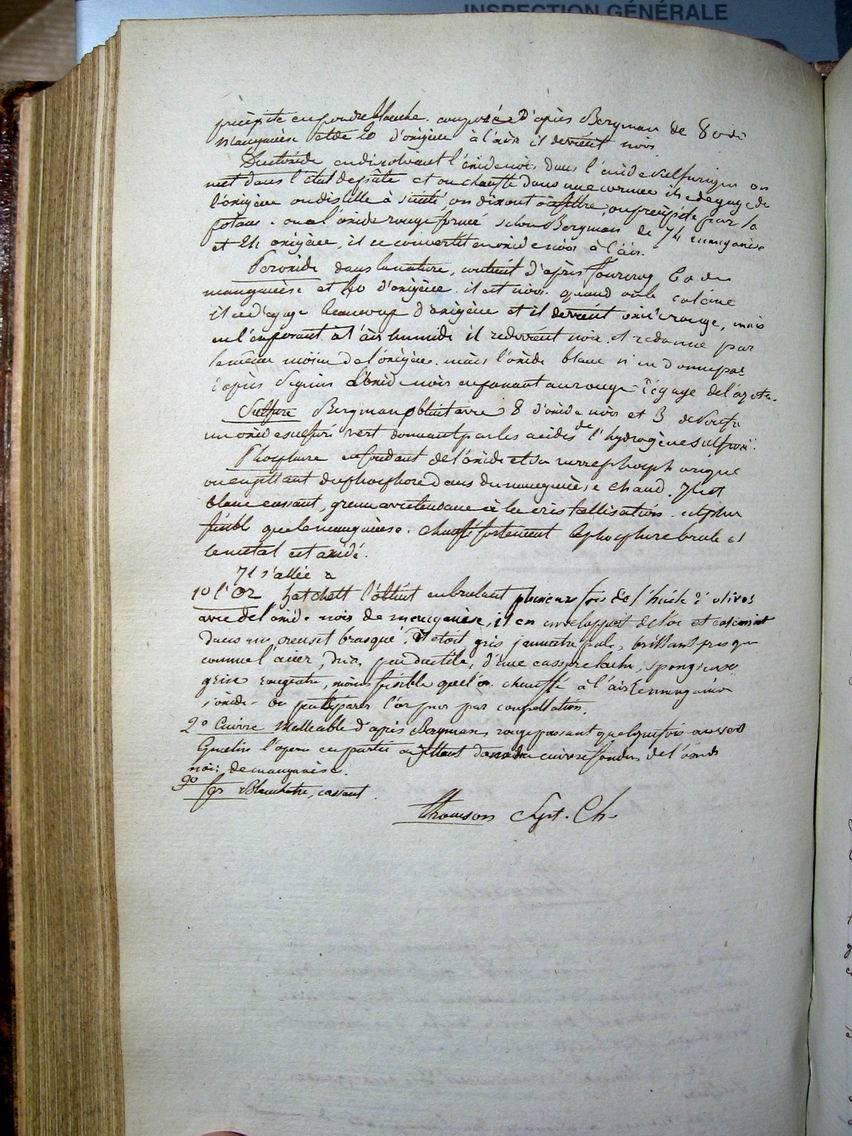 INSPECTION GÉNÉRALE
précipite en poudre blanche. composée d'après Bergman de 80 de
manganèse et de 20 d'oxigène à l'air il devient noir
Deutoxide en dissolvant l'oxide noir dans l'acide sulfurique on
met dans l'état de pâte et on chauffe dans une cornue il se dégage de
l'oxigène on distille à siccité, on dissout on filtre, on précipite par la
potasse. on a l'oxide rouge formé selon Bergman de 74 manganèse
et 26 oxigène, il se convertit en oxide noir à l'air.
Peroxide dans la nature, contient d'après Fourcroy 60 de
manganèse et 40 d'oxigène. il est noir quand on le calcine
il se dégage beaucoup d'oxigène et il devient oxide rouge, mais
en l'exposant à l'air humide il redevient noir et redonne par
la même moins de l'oxigène. mais l'oxide blanc n'en donne pas
d'après Seguin l'oxide noir en passant au rouge dégage de l'azote.
Sulfure Bergman obtint avec 8 d'oxide noir et 3 de soufre
un oxide sulfuré vert donnant par les acides de l'hydrogène sulfuré.
Phosphure en fondant de l'oxide et du verre phosphorique
ou en jettant du phosphore dans du manganèse chaud. Il est
blanc cassant, grenu avec tendance à la cristallisation. est plus
fusible que le manganèse. chauffé fortement le phosphore brule et
le métal est oxidé.
Il s'allie à
1o l'Or Hatchett l'obtint en brulant plusieurs fois de l'huile d'olives
avec de l'oxide noir de manganèse, il en enveloppoit de l'or et calcinoit
dans un creuset brasqué. Il étoit gris jaunâtre pale, brillant presque
comme l'acier, dur, peu ductile, d'une cassure spongieuse
grise rougeatre, moins fusible que l'or chauffé à l'air le manganèse
s'oxide. On peut séparer l'or pur par coupellation.
2o Cuivre Malleable d'après Bergman, rouge passant quelquefois au vert
Gmelin l'opère en partie en jettant dans du cuivre fondu de l'oxide
noir de manganèse.
3o fer Blanchatre, cassant.
Thomson Syst. Ch.